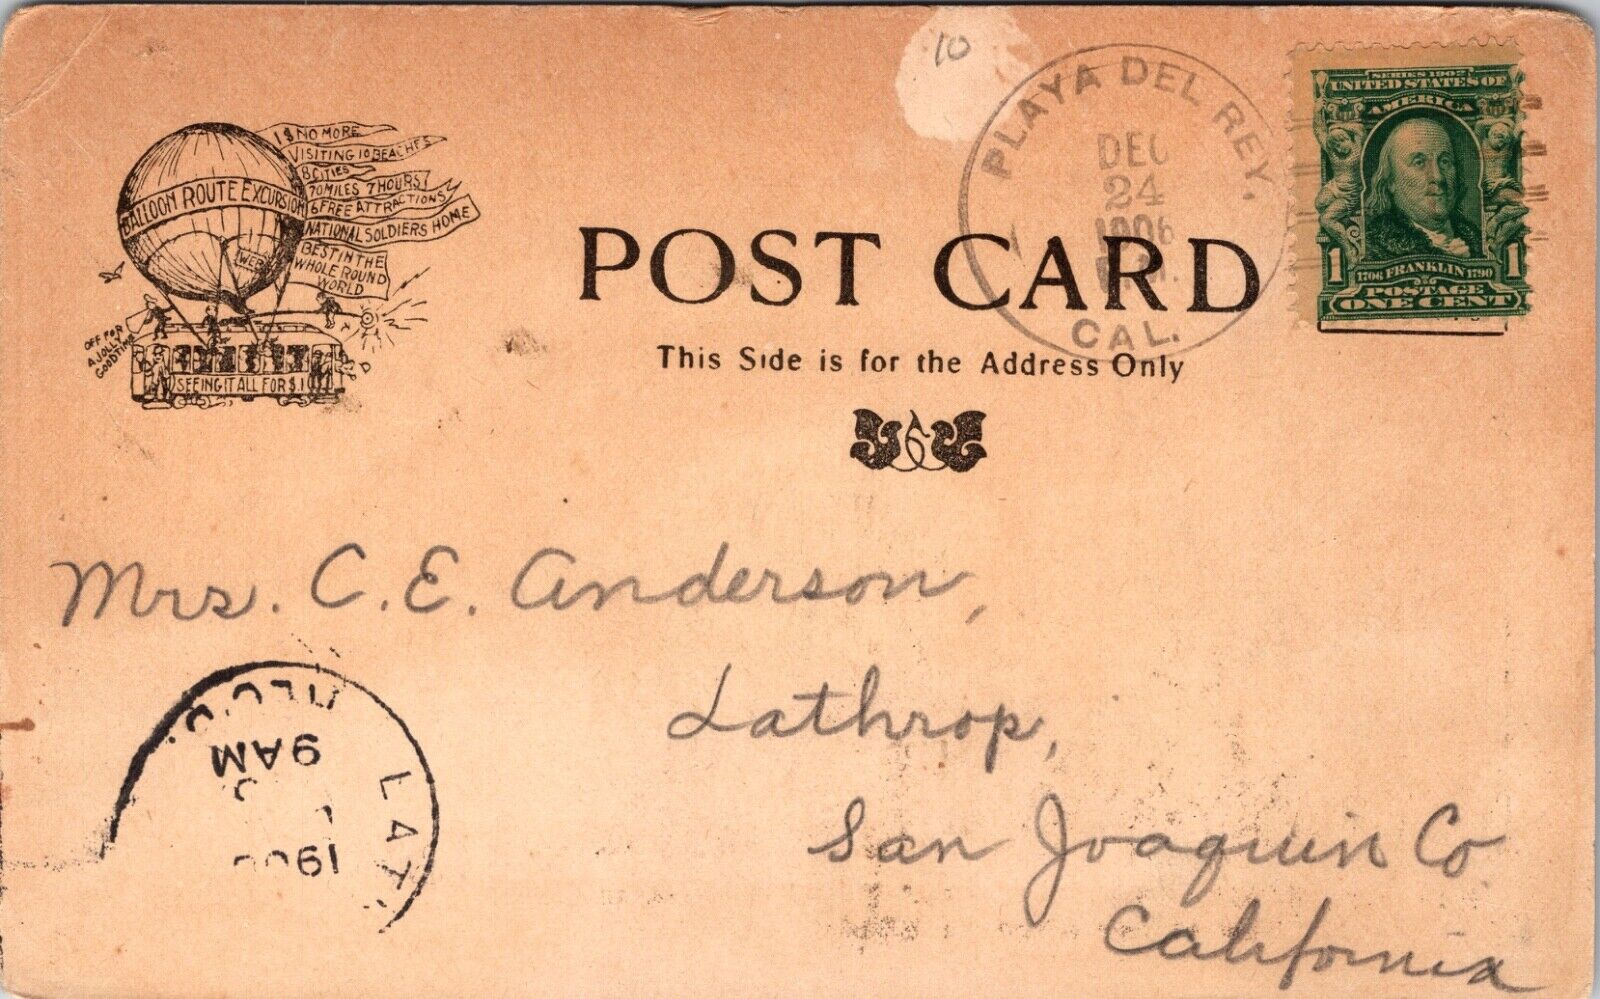 10
PLAYA DEL REY,
DEC
24
1906
CAL.
SERIES 1902
UNITED STATES OF
AMERICA
1 1706 FRANKLIN 1790 1
POSTAGE
ONE CENT
1$ NO MORE
VISITING 10 BEACHES
8 CITIES
70 MILES 7 HOURS
6 FREE ATTRACTIONS
NATIONAL SOLDIERS HOME
BEST IN THE
WHOLE ROUND
WORLD
BALLOON ROUTE EXCURSION
OFF FOR
A JOLLY
GOOD TIME
SEEING IT ALL FOR $1
POST CARD
This Side is for the Address Only
Mrs. C. E. Anderson,
Lathrop,
San Joaquin Co
California
LAT
REC'D.
9 AM